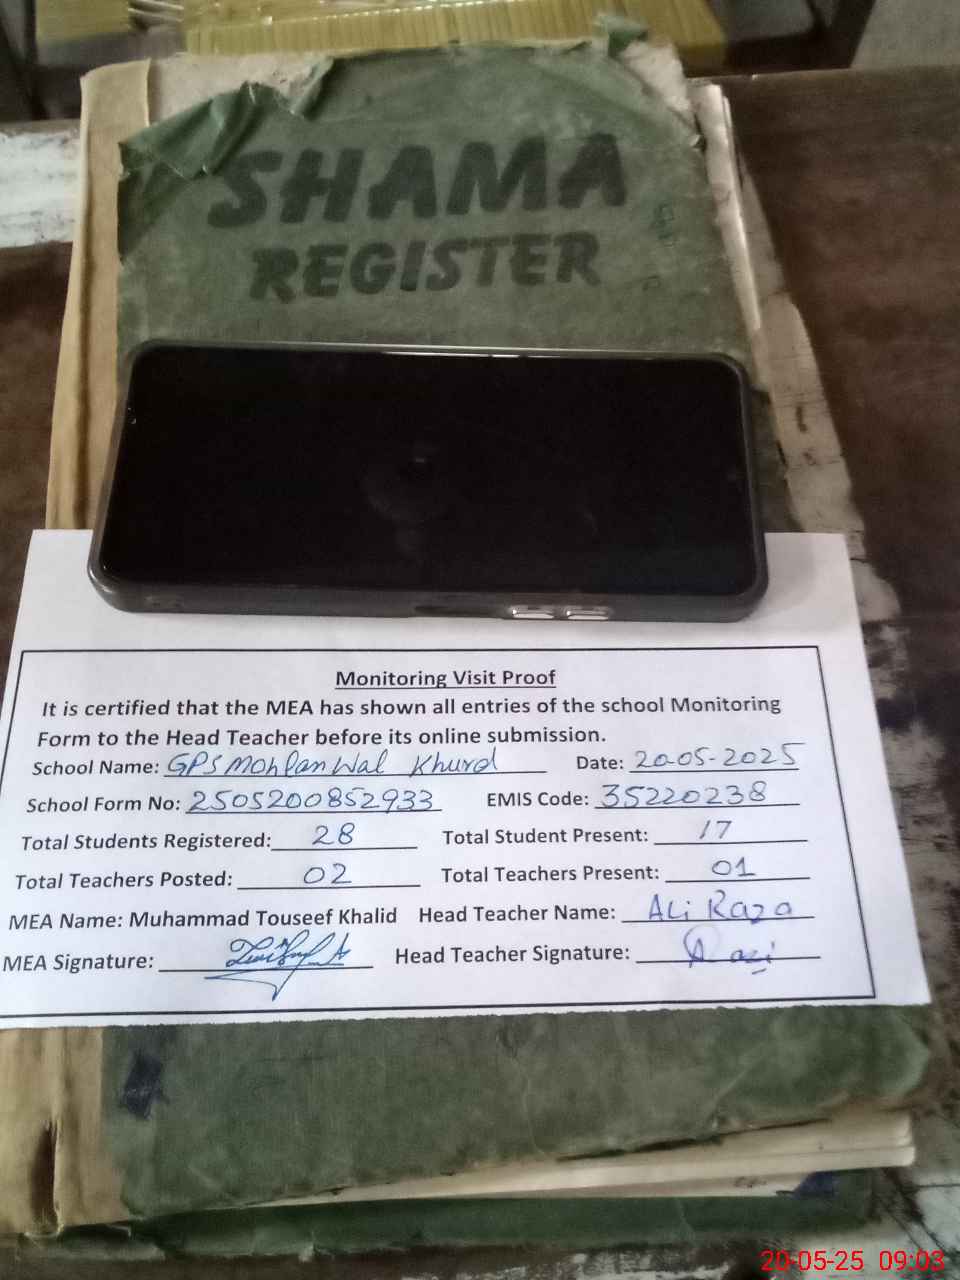 SHAMA
REGISTER
Monitoring Visit Proof
It is certified that the MEA has shown all entries of the school Monitoring
Form to the Head Teacher before its online submission.
School Name: GPS Mohlanwal Khurd Date: 20-05-2025
School Form No: 2505200852933 EMIS Code: 35220238
Total Students Registered: 28 Total Student Present: 17
Total Teachers Posted: 02 Total Teachers Present: 01
MEA Name: Muhammad Touseef Khalid Head Teacher Name: Ali Raza
MEA Signature: Head Teacher Signature:
20-05-25 09:03